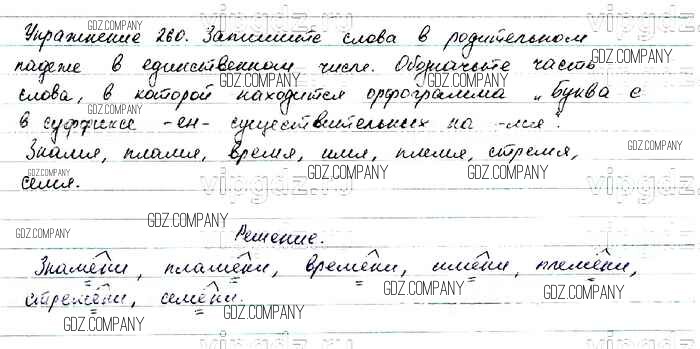 Упражнение 260. Запишите слова в родительном
падеже в единственном числе. Обозначьте часть
слова, в которой находится орфограмма „Буква е
в суффиксе -ен- существительных на -мя".
Знамя, пламя, время, имя, племя, стремя,
семя.
Решение.
Знамени, пламени, времени, имени, племени,
стремени, семени.
GDZ.COMPANY
vipgdz.ru